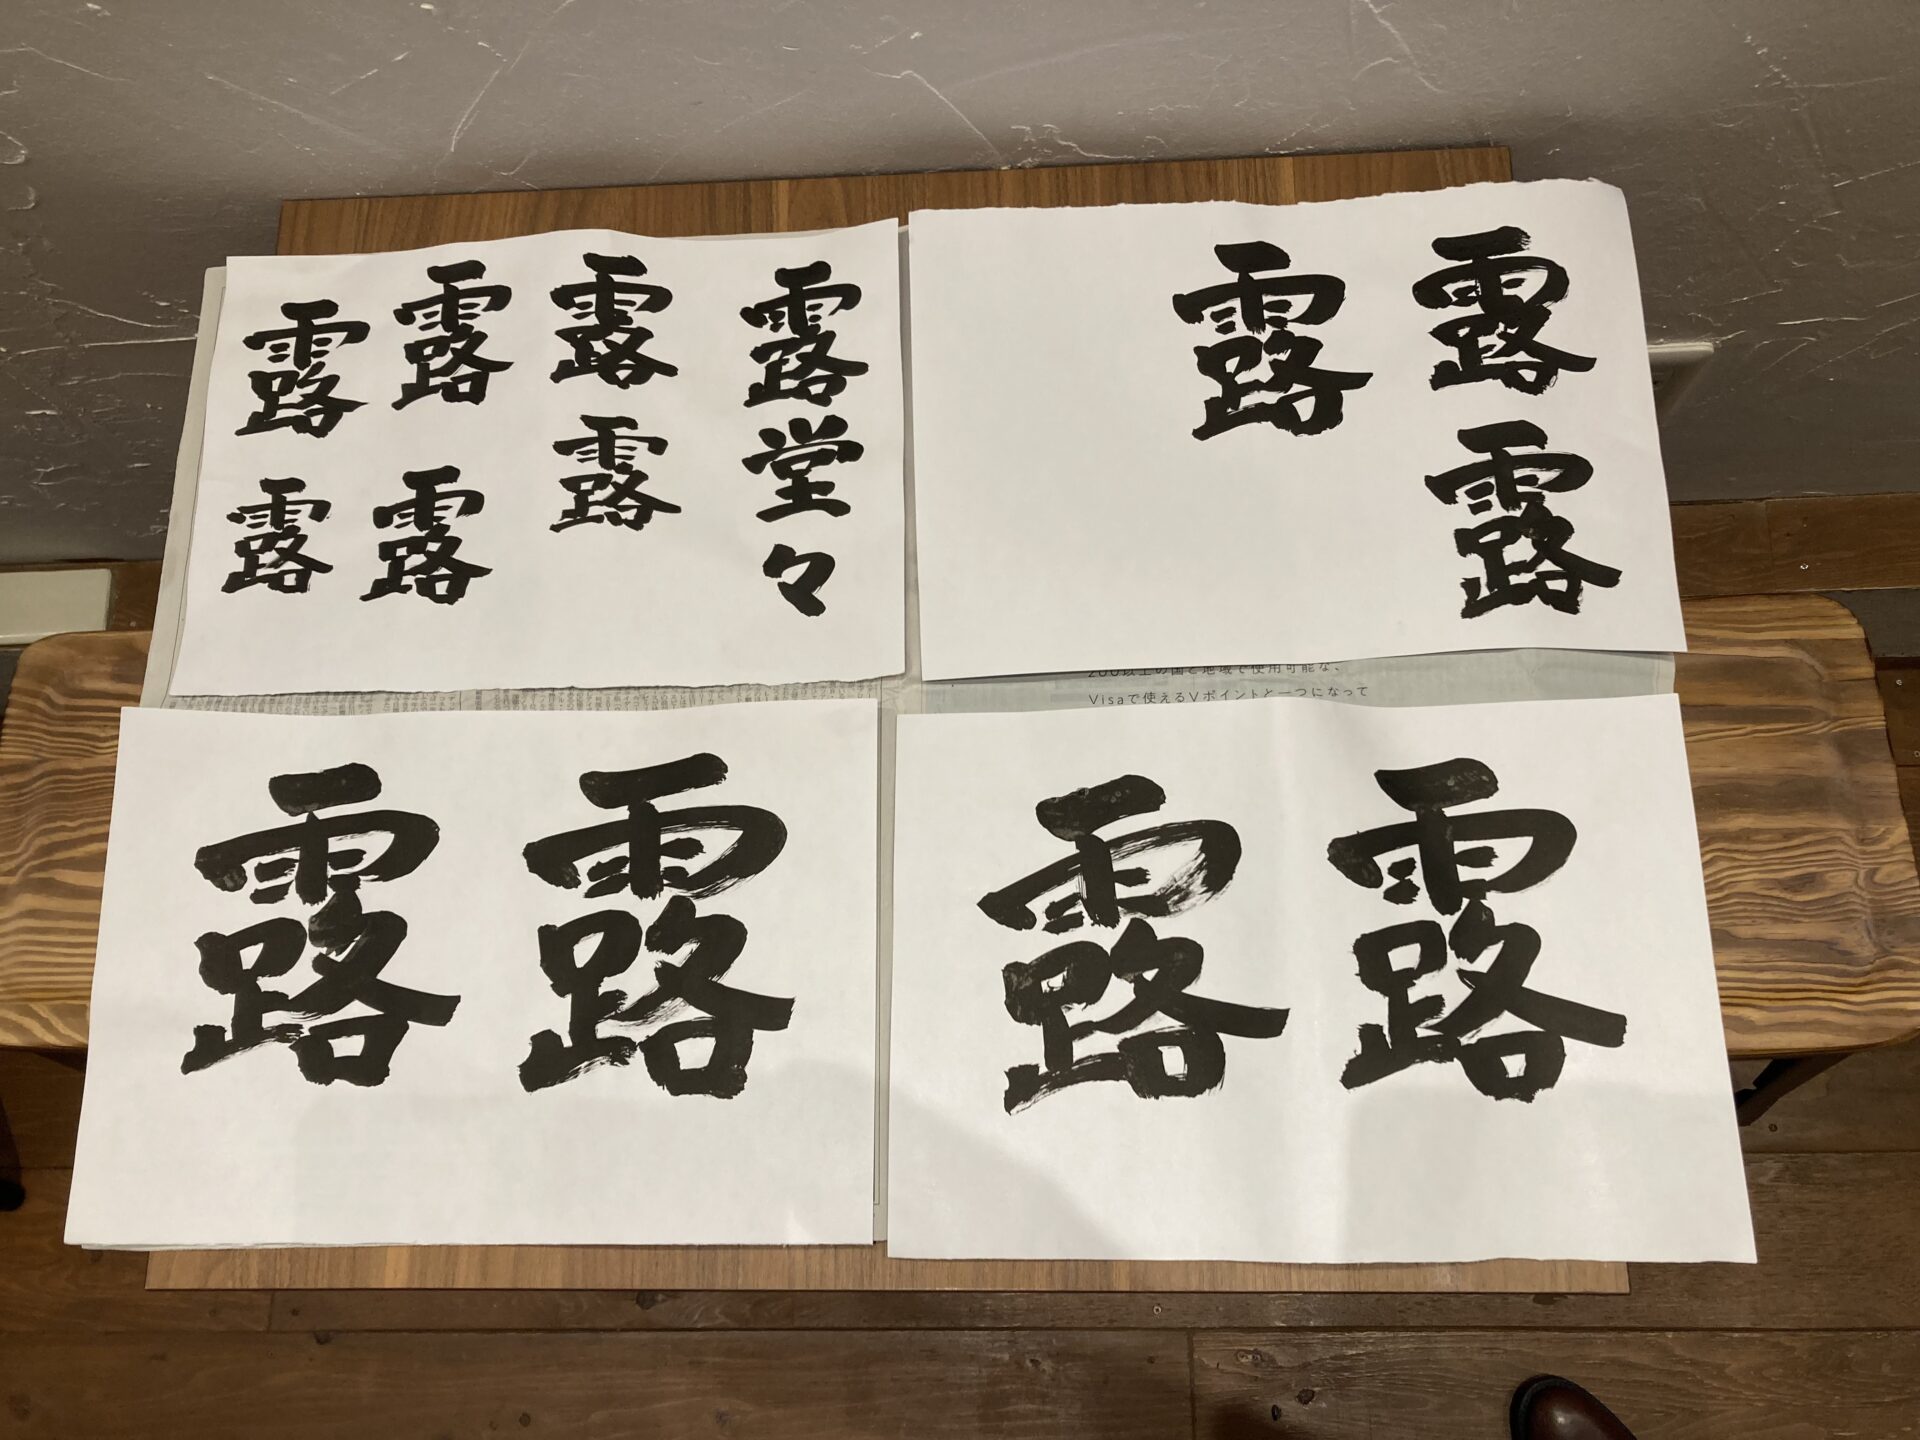 露堂々
露
露
露
露
露
露
露
露
露
露
露
露
露
200以上の国と地域で使用可能な、
Visaで使えるVポイントと一つになって